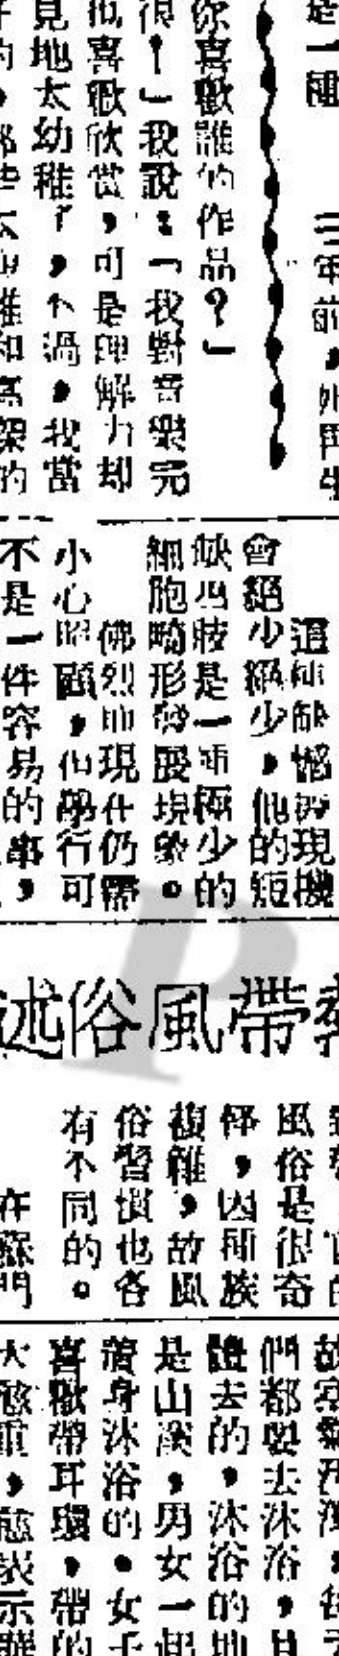 是一種
三年前，外
你喜歡誰的作品？」
很！」我說：「我對音樂完
也喜歡欣賞，可是理解力却
見地太幼稚了，不過，我當
這種缺憾
現機
會絕少絕少，他的短
缺出肢是一種極少的
細胞畸形發展現象。
佛烈地現在仍需
小心照顧，但學行可
不是一件容易的事，
熱帶風俗述
風俗是很奇
怪，因種族
複雜，故風
俗習慣也各
有不同的。
在蘇門
們都要去沐浴，且
體去的，沐浴的地
是山澗，男女一起
着身沐浴的。女子
喜歡帶耳環，帶的
大愈重，愈表示